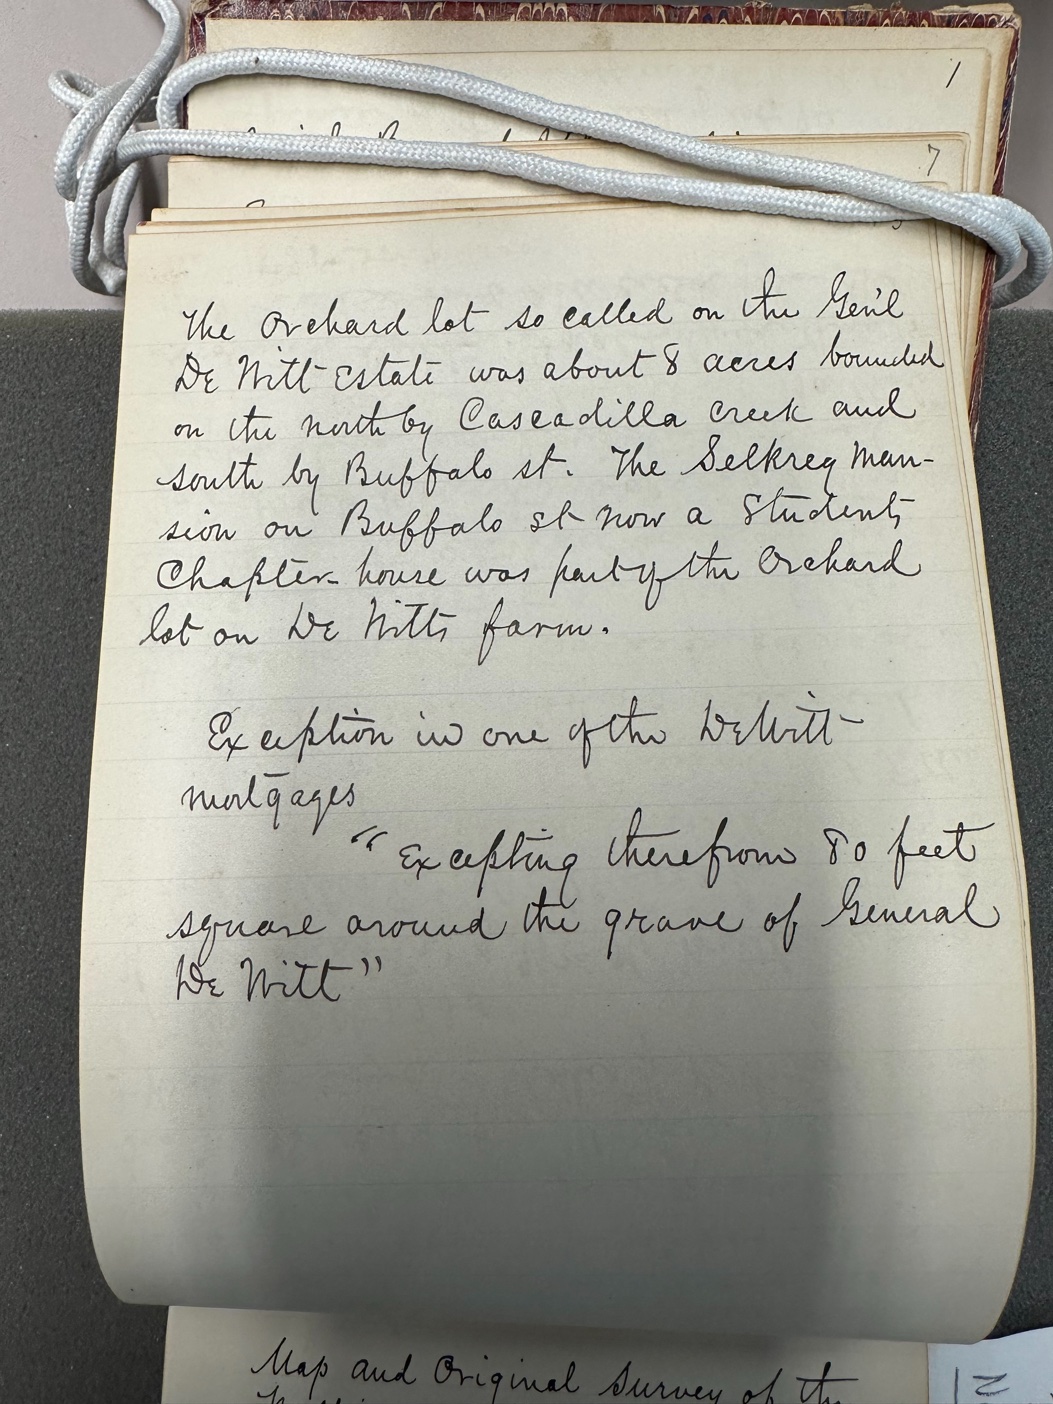 1
7
The Orchard lot so called on the Gen'l
De Witt Estate was about 8 acres bounded
on the north by Cascadilla Creek and
south by Buffalo st. The Selkreg Man-
sion on Buffalo St now a Students
Chapter house was part of the Orchard
lot on De Witts farm.
Exception in one of the DeWitt
mortgages
"Excepting therefrom 80 feet
square around the grave of General
De Witt"
Map and Original Survey of the